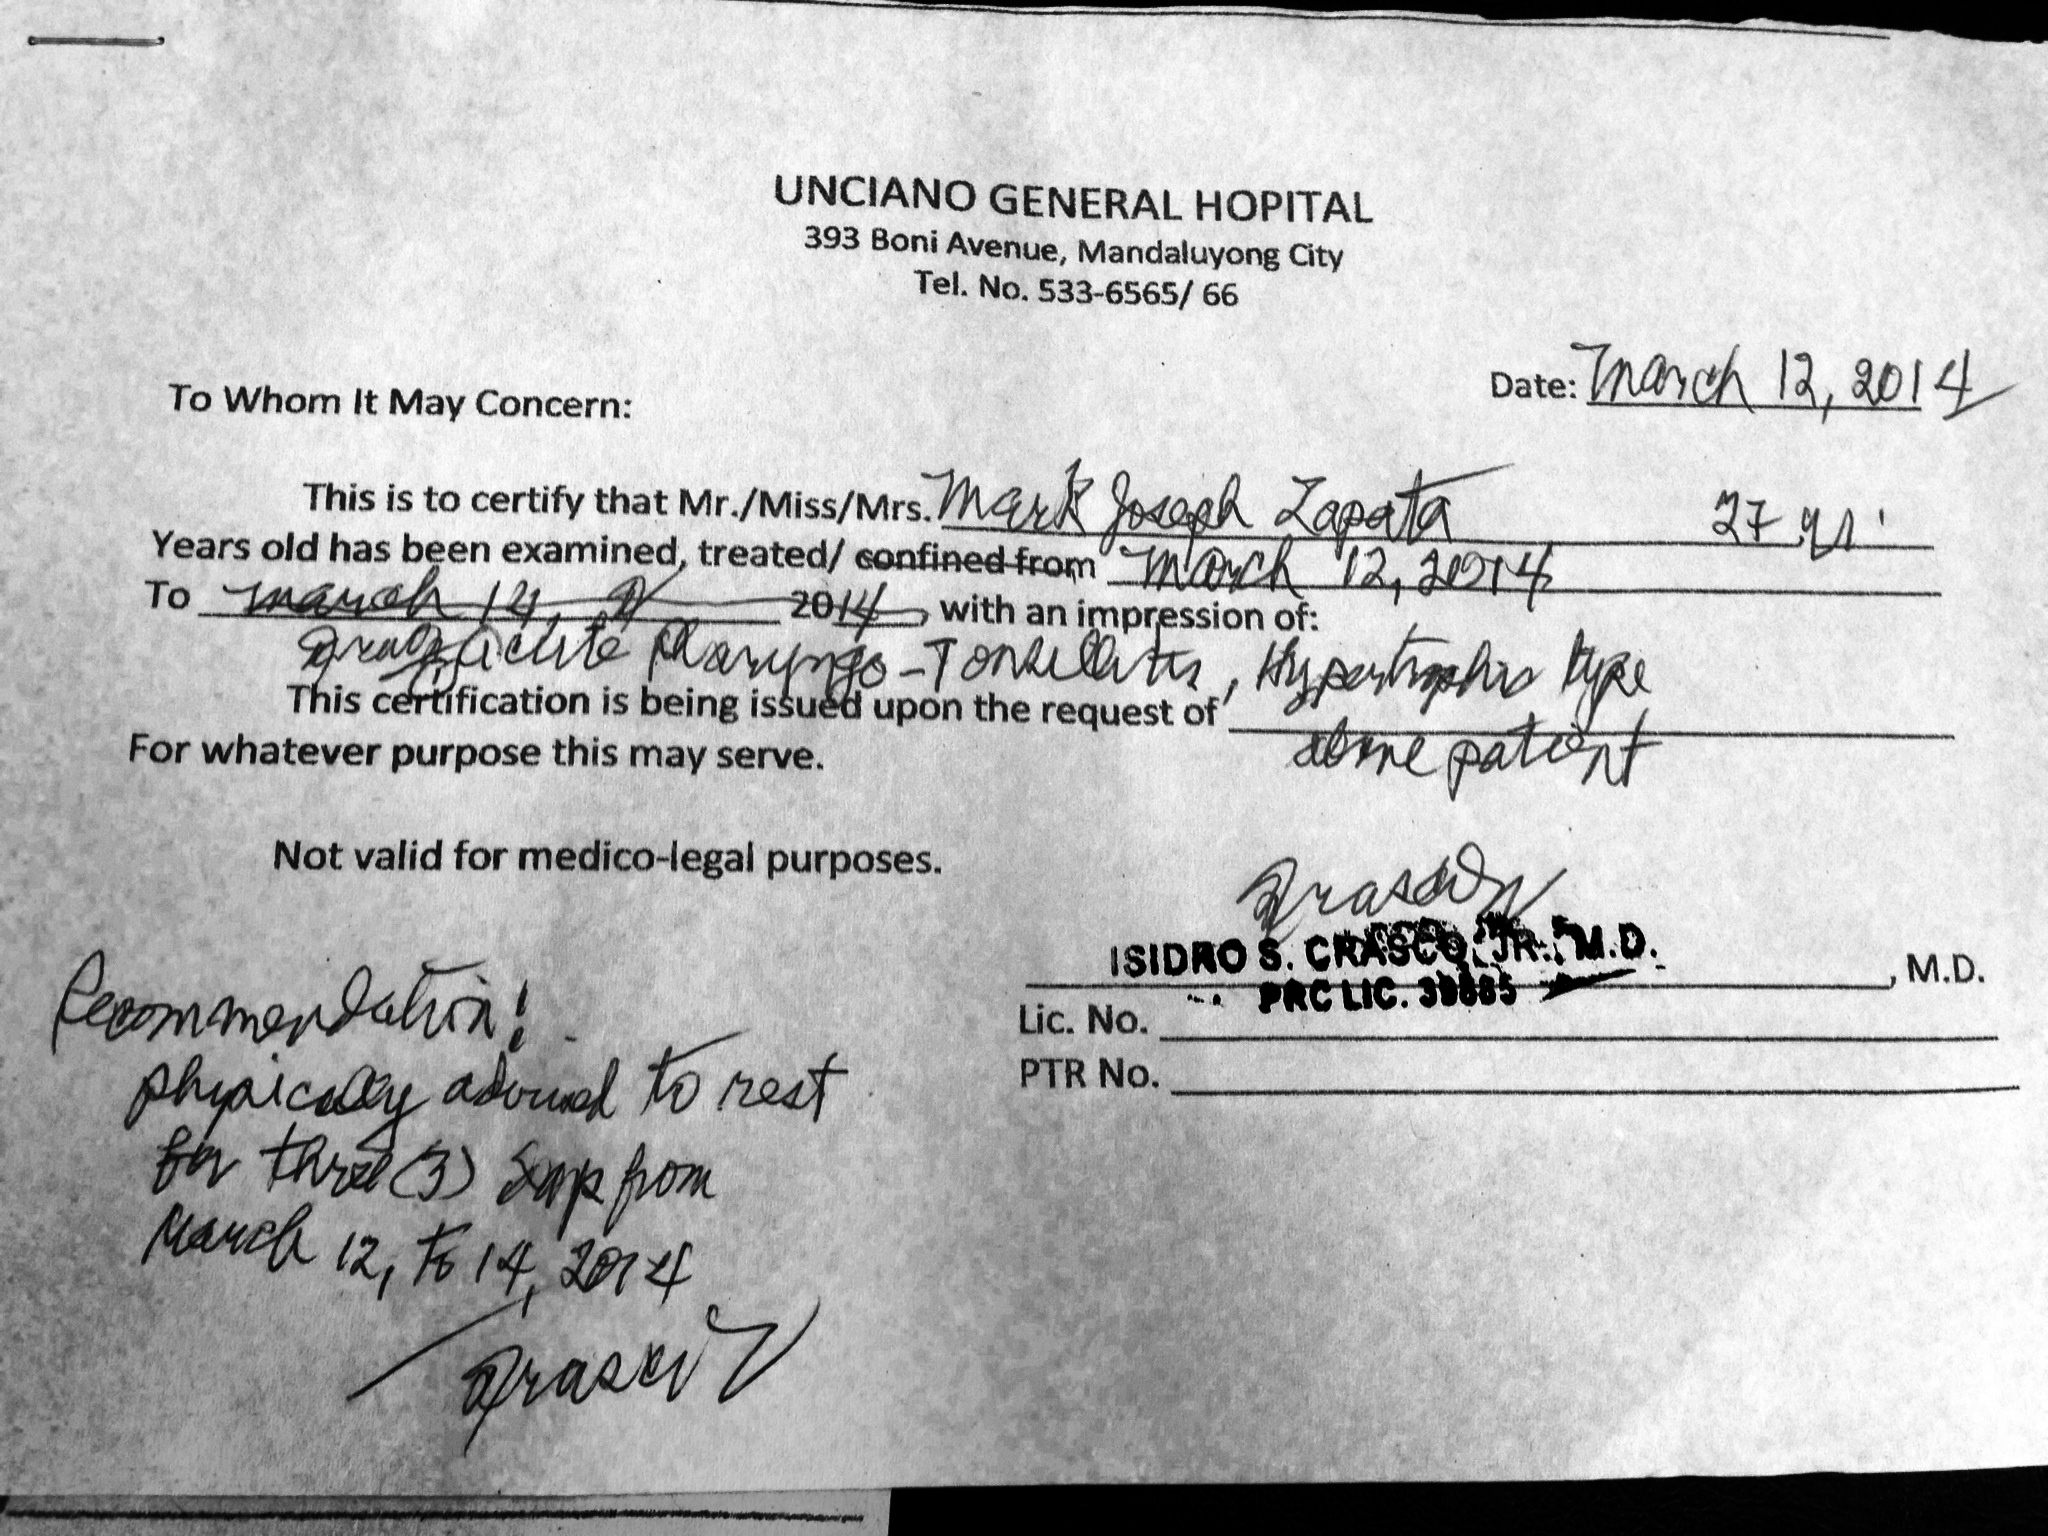 UNCIANO GENERAL HOPITAL
393 Boni Avenue, Mandaluyong City
Tel. No. 533-6565/ 66
Date: March 12, 2014
To Whom It May Concern:
This is to certify that Mr./Miss/Mrs. Mark Joseph Zapata 27 yr.
Years old has been examined, treated/ confined from March 12, 2014
To March 14, 2014, with an impression of:
Acute Pharyngo-Tonsillitis, Hypertrophic type
This certification is being issued upon the request of
above patient
For whatever purpose this may serve.
Not valid for medico-legal purposes.
ISIDRO S. CRASCO, JR., M.D.
, M.D.
PRC LIC.
Lic. No.
PTR No.
Recommendation:
physically advised to rest
for three (3) days from
March 12, to 14, 2014